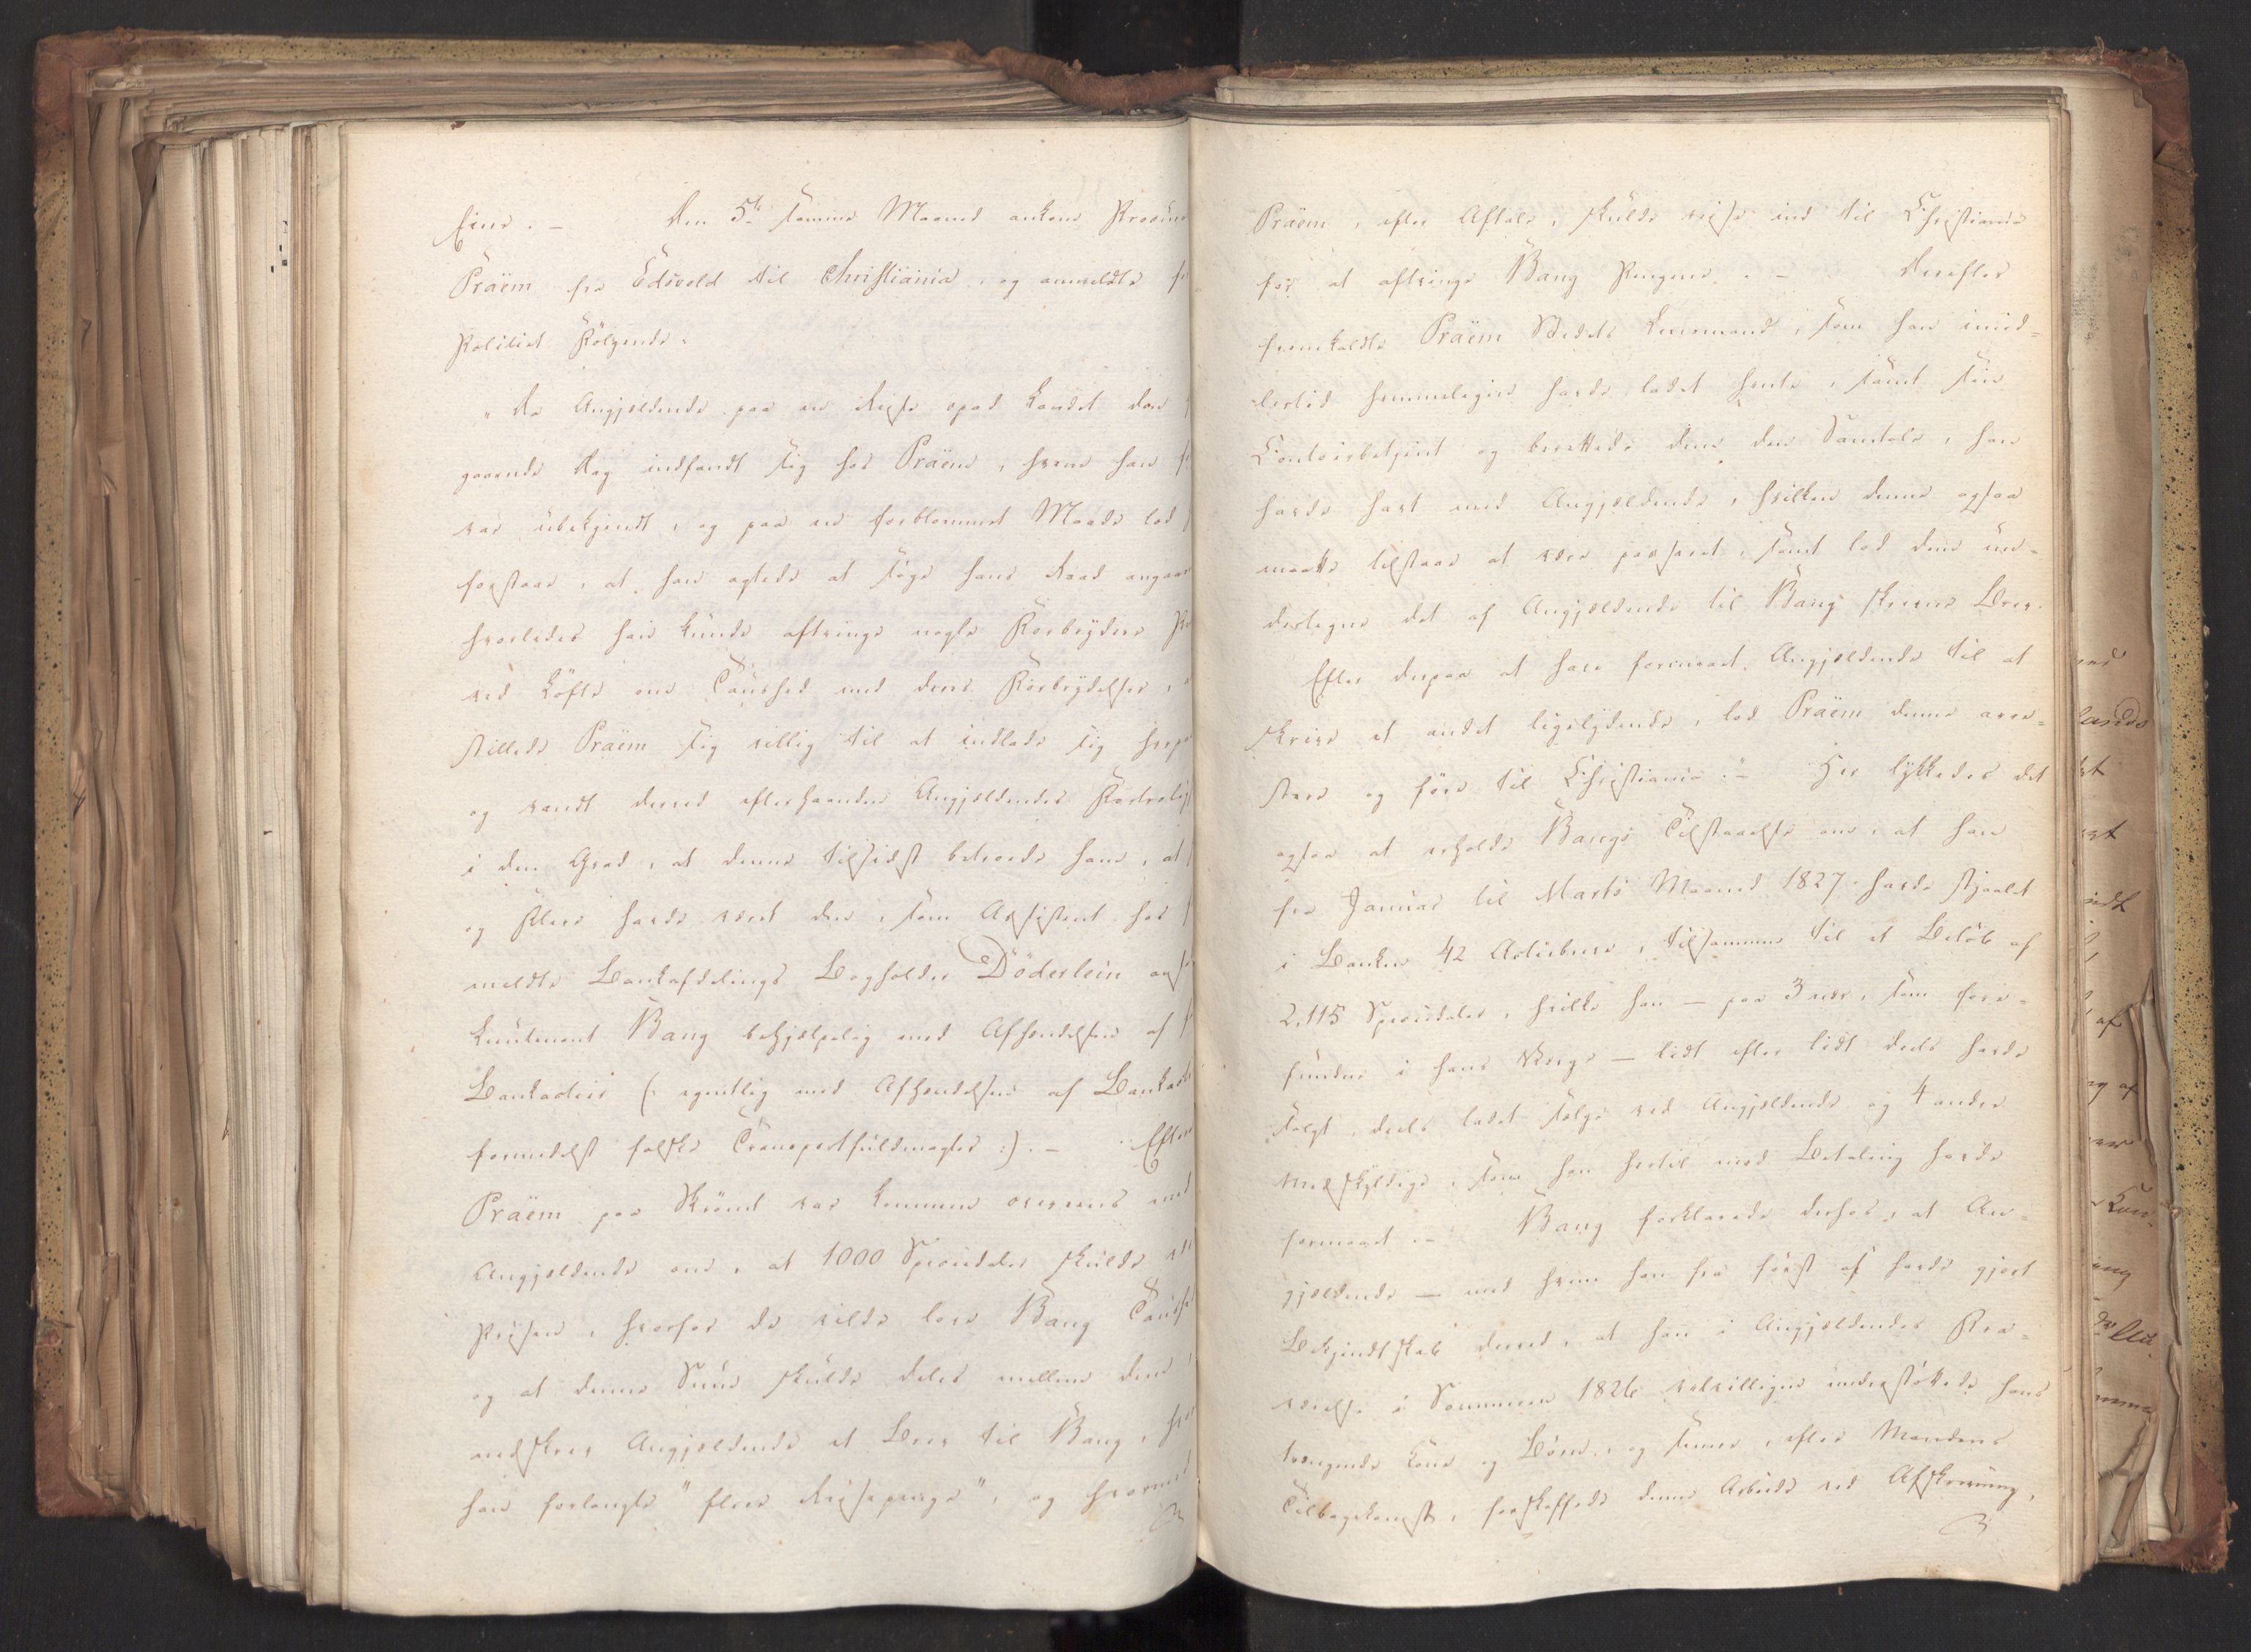 fine. – Den 5te samme Maaned ankom
Präem fra Edsvold til Christiania, og anmeldte
Politiet Følgende:
"Da Angjeldende paa en Reise opad Landet den
gaaende Dag indfandt sig hos Präem, hvem han
var übekjendt, og paa en forblommet Maade lod
forstaae, at han agtede at søge hans Raad angaa
hvorledes han kunde aftvinge nogle Forbrydere
ved Løfte om Taushed med deres Forbrydelser,
stillede Präem sig villig til at indlade sig
og vandt derved efterhaanden Angjeldendes
i den Grad, at denne tilsidst betroede ham, at
og Flere havde været den, som Assistent hos
meldte Bankafdelings Bogholder Döderlein
Lieutenant Bang behjelpelig med Afhændelsen af
Bankactier (: egentlig med Afhændelsen af
formedelst falske Transportfuldmagter :). – Efter
Präem paa Skrømt var kommen overeens med
Angjeldende om, at 1000 Speciedaler skulde
Prisen, hvorfor de vilde love Bang
og at denne Sum skulde deles mellem dem,
nedskrev Angjeldende et Brev til Bang,
han forlangte "flere Reisepenge", og hvormed
Präem, efter Aftale, skulde reise ind til Christiania
for at aftvinge Bang Pengene. – Derefter
fremkaldte Präem Stedets Lensmand, som han imid-
lertid hemmeligen havde ladet hente, samt sin
Contoirbetjent og berettede dem den Samtale, han
havde havt med Angjeldende, hvilken denne ogsaa
maatte tilstaae at være passeret, samt lod dem un-
dertegne det af Angjeldende til Bang skrevne Brev.
Efter derpaa at have formaaet Angjeldende til at
skrive et andet ligelydende, lod Präem denne arre-
stere og føre til Christiania." – Her lykkedes det
ogsaa at erholde Bangs Tilstaaelse om, at han
fra Januar til Marts Maaned 1827 havde stjaalet
i Banken 42 Actiebreve, tilsammen til et Beløb af
2,115 Speciedaler, hvilke han – paa 3 nær, som fore-
fundne i hans Værge – lidt efter lidt deels havde
solgt, deels ladet sælge ved Angjeldende og 4 andre
Medskyldige, som han hertil mod Betaling havde
formaaet. – Bang forklarede derhos, at An-
gjeldende – med hvem han fra først af havde gjort
Bekjendtskab derved, at han i Angjeldendes Fra-
værelse i Sommeren 1826 velvilligen understøttede hans
trængende Kone og Børn, og siden, efter Mandens
Tilbagekomst, forskaffede denne Arbeide ved Afskrivning,